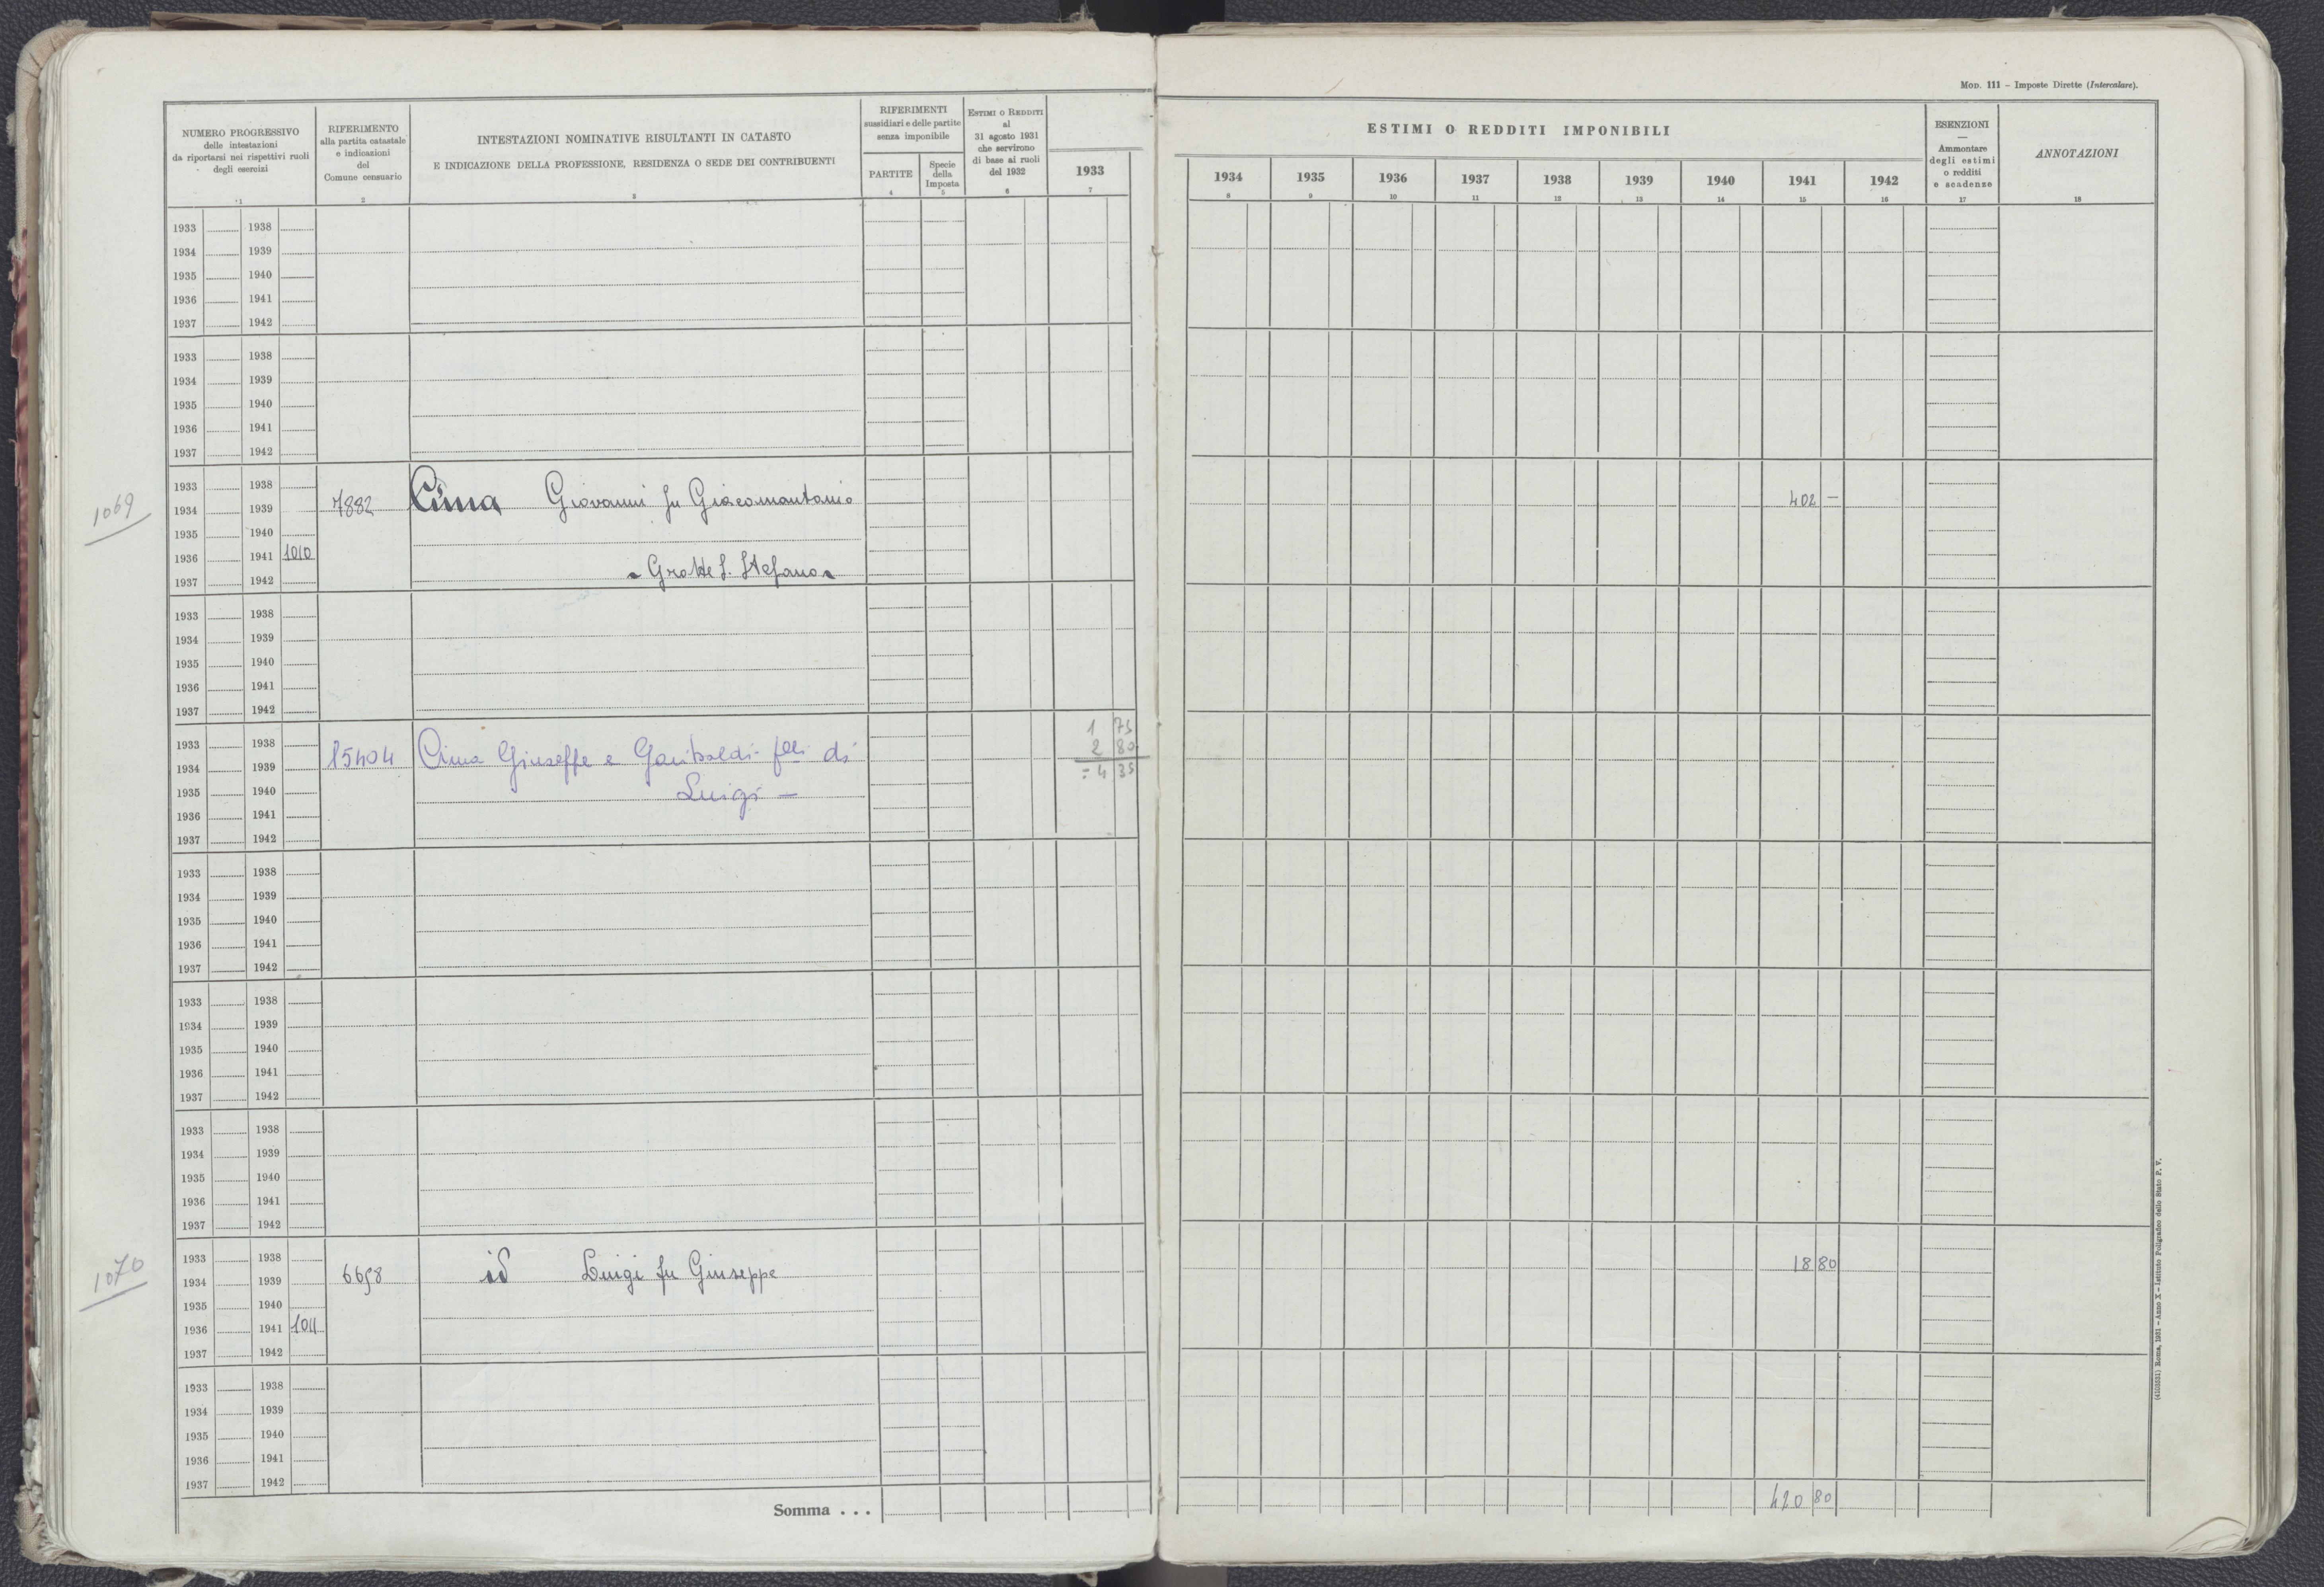 Mod. 111 – Imposte Dirette (Intercalare).
NUMERO PROGRESSIVO
delle intestazioni
da riportarsi nei rispettivi ruoli
degli esercizi
1
RIFERIMENTO
alla partita catastale
e indicazioni
del
Comune censuario
2
INTESTAZIONI NOMINATIVE RISULTANTI IN CATASTO
E INDICAZIONE DELLA PROFESSIONE, RESIDENZA O SEDE DEI CONTRIBUENTI
3
RIFERIMENTI
sussidiari e delle partite
senza imponibile
PARTITE
4
Specie
della
Imposta
5
Estimi o Redditi
al
31 agosto 1931
che servirono
di base ai ruoli
del 1932
6
1933
7
ESTIMI O REDDITI IMPONIBILI
1934 1935 1936 1937 1938 1939 1940 1941 1942
8 9 10 11 12 13 14 15 16
ESENZIONI
—
Ammontare
degli estimi
o redditi
e scadenze
17
ANNOTAZIONI
18
1933 1938
1934 1939
1935 1940
1936 1941
1937 1942
1933 1938
1934 1939
1935 1940
1936 1941
1937 1942
1069
1933 1938
1934 1939 7882 Cima Giovanni fu Giacomantonio 402 —
1935 1940
1936 1941 1010
1937 1942 - Grotte S. Stefano -
1933 1938
1934 1939
1935 1940
1936 1941
1937 1942
1 75
1933 1938 2 80
1934 1939 15404 Cima Giuseppe e Garibaldi flli di = 4 35
1935 1940 Luigi —
1936 1941
1937 1942
1933 1938
1934 1939
1935 1940
1936 1941
1937 1942
1933 1938
1934 1939
1935 1940
1936 1941
1937 1942
1933 1938
1934 1939
1935 1940
1936 1941
1937 1942
1070
1933 1938
1934 1939 6658 id Luigi fu Giuseppe 18 80
1935 1940
1936 1941 1011
1937 1942
1933 1938
1934 1939
1935 1940
1936 1941
1937 1942
Somma . . . 420 80
(4103531) Roma, 1931 – Anno X – Istituto Poligrafico dello Stato P. V.